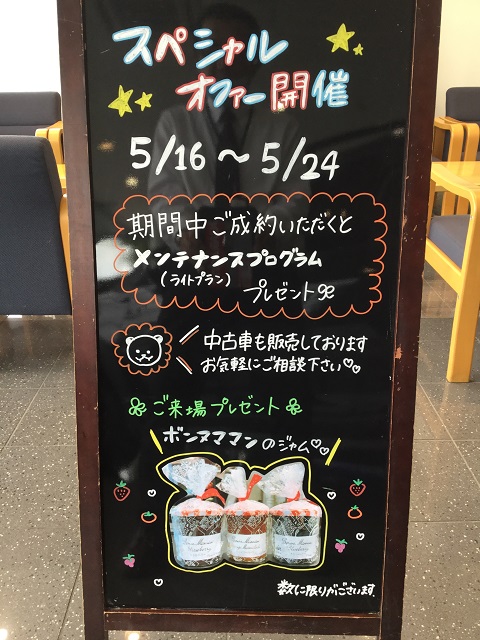 スペシャル
オファー開催
5/16～5/24
期間中ご成約いただくと
メンテナンスプログラム
(ライトプラン)
プレゼント
中古車も販売しております
お気軽にご相談下さい♡♡
ご来場プレゼント
ボンヌママンのジャム♡♡
Bonne Maman
Bonne Maman
Bonne Maman
数に限りがございます